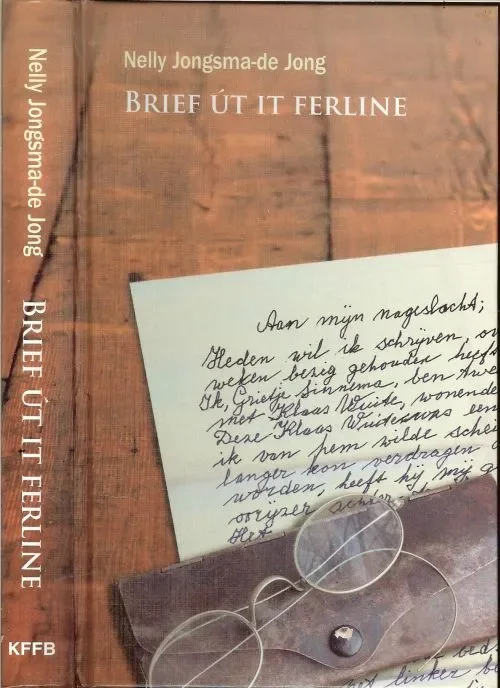 Nelly Jongsma-de Jong
BRIEF ÚT IT FERLINE
KFFB
Nelly Jongsma-de Jong
BRIEF ÚT IT FERLINE
Aan mijn nageslacht;
Heden wil ik schrijven,
weken bezig gehouden heeft
Ik, Grietje Sinnema, ben
met Klaas Wuite, wonende
Deze Klaas
ik van hem wilde
langer kon verdragen
worden, heeft hij mij
oorijzer
Het
linker